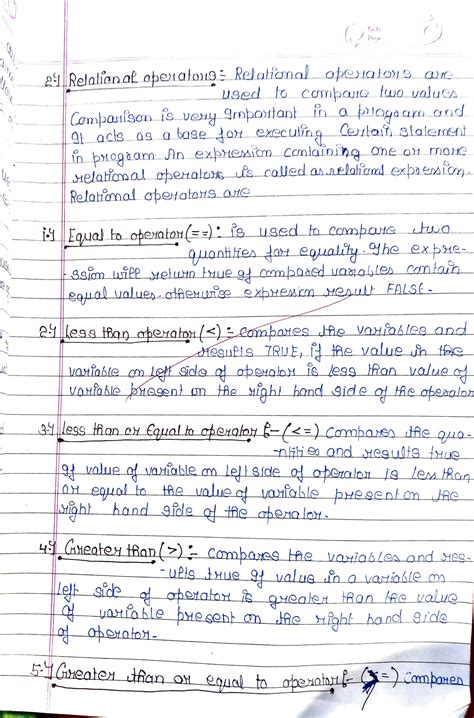 2.) Relational operators:- Relational operators are
used to compare two values
Comparison is very Important in a program and
It acts as a base for executing Certain statement
in program An expression containing one or more
relational operators is called as relational expression.
Relational operators are
1.) Equal to operator (==):- is used to compare two
quantities for equality. The expre-
-ssion will return true if compared variables contain
equal values. otherwise expression result FALSE.
2.) less than operator (<):- compares the variables and
results TRUE, if the value in the
variable on left side of operator is less than value of
variable present on the right hand side of the operator
3.) less than or Equal to operator :- (<=) compares the qua-
-ntities and results true
If value of variable on left side of operator is less than
or equal to the value of variable present on the
right hand side of the operator.
4.) Greater than (>):- compares the variables and res-
-ults true If value in a variable on
left side of operator is greater than the value
of variable present on the right hand side
of operator.
5.) Greater than or equal to operator :- (>=) compares